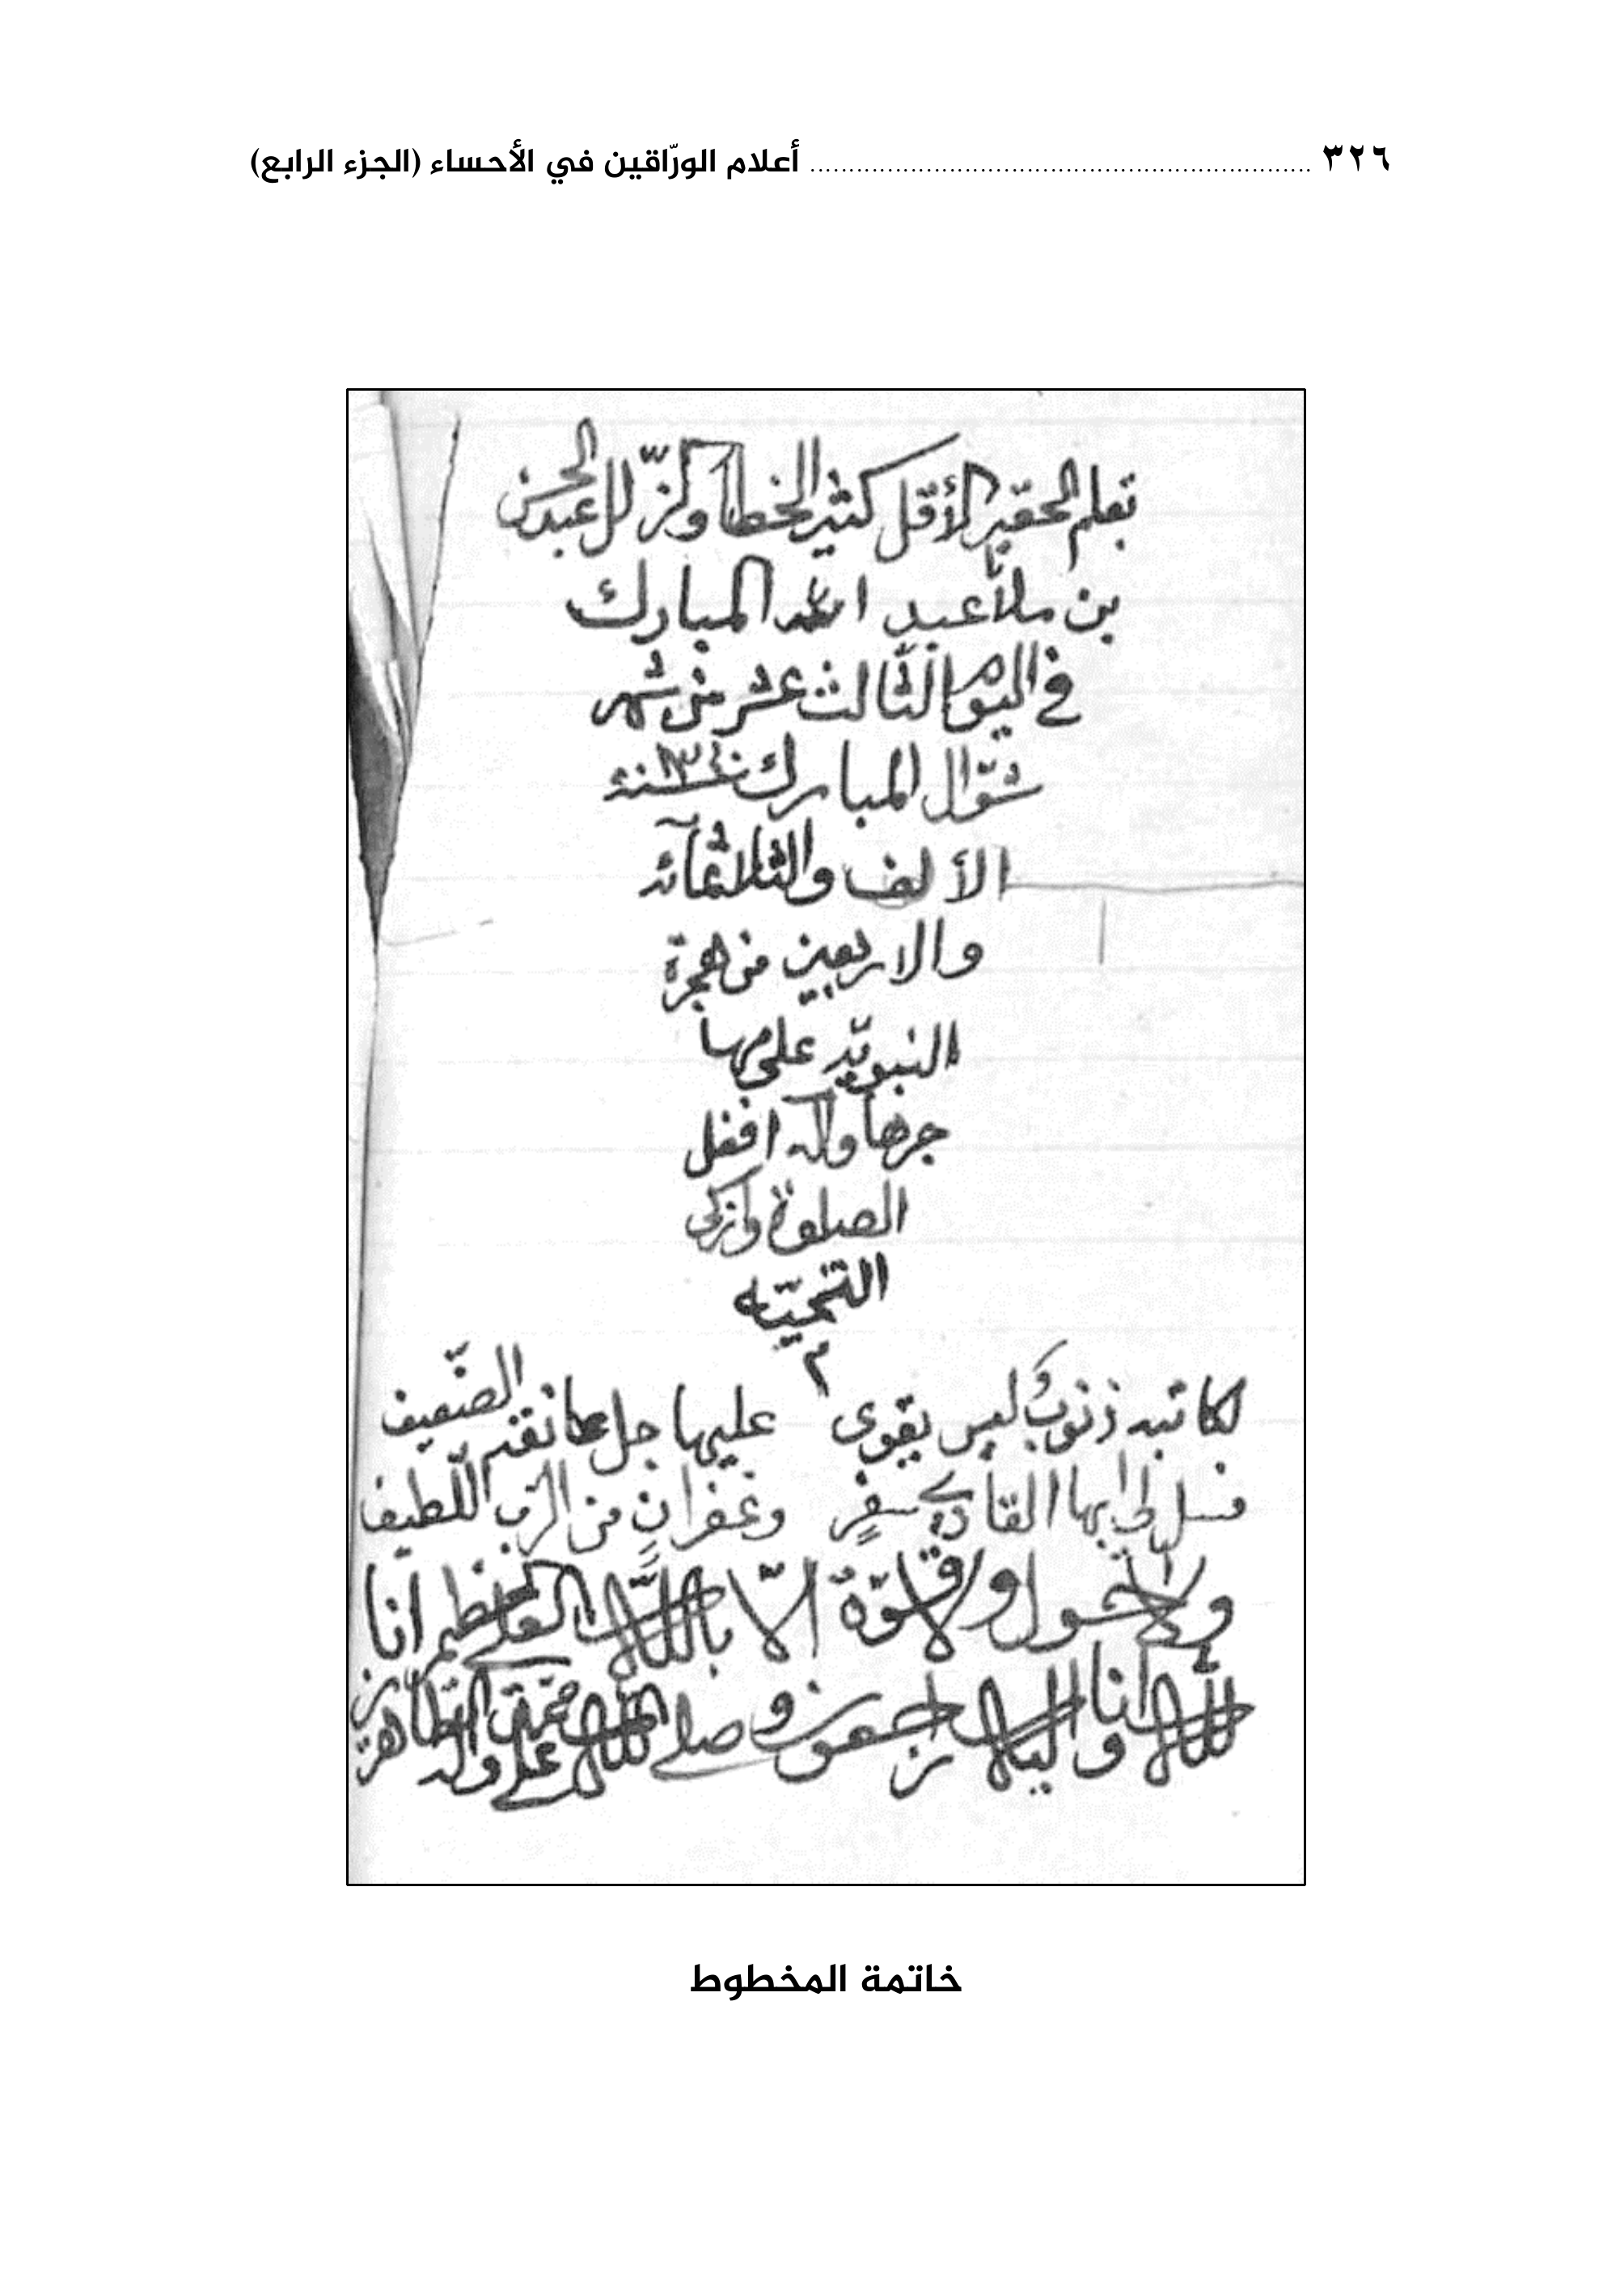 ٣٢٦ ........ أعلام الورّاقين في الأحساء (الجزء الرابع)
بقلم الحقير الأقل كثير الخطا والزّلل عبد الحسن
بن ملا عبد الله المبارك
في اليوم الثالث عشر من شهر
شوّال المبارك سنة
الألف والثلاثمآئة
والاربعين من هجرة
النبويّه على مها
جرها وآله افضل
الصلوة وأزكى
التحيّه
م
لكاتبه ذنوب ليس يقوى عليها جل عانقه الضّعيف
فسل لي ايها القاري بغفرٍ وغفرانٍ من الرّب اللّطيف
ولا حول ولا قوّة الّا باللّه العلي العظيم انا
للّه وانا اليه راجعون وصلى الله على محمّد وآله الطّاهرين
خاتمة المخطوط